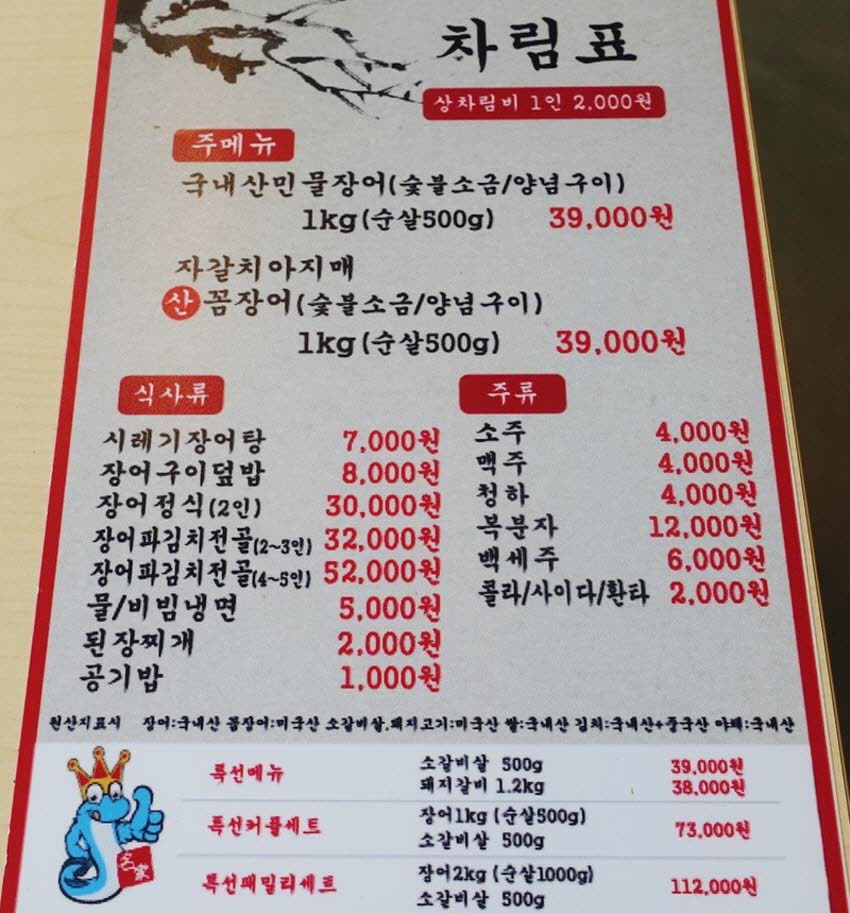 차림표
상차림비 1인 2,000원
주메뉴
국내산민물장어(숯불소금/양념구이)
1kg(순살500g) 39,000원
자갈치아지매
산 꼼장어(숯불소금/양념구이)
1kg(순살500g) 39,000원
식사류
시레기장어탕 7,000원
장어구이덮밥 8,000원
장어정식(2인) 30,000원
장어파김치전골(2~3인) 32,000원
장어파김치전골(4~5인) 52,000원
물/비빔냉면 5,000원
된장찌개 2,000원
공기밥 1,000원
주류
소주 4,000원
맥주 4,000원
청하 4,000원
복분자 12,000원
백세주 6,000원
콜라/사이다/환타 2,000원
원산지표식 장어:국내산 꼼장어:미국산 소갈비살,돼지고기:미국산 쌀:국내산 김치:국내산+중국산 야채:국내산
특선메뉴 소갈비살 500g 39,000원
돼지갈비 1.2kg 38,000원
특선커플세트 장어1kg (순살500g) 73,000원
소갈비살 500g
특선패밀리세트 장어2kg (순살1000g) 112,000원
소갈비살 500g
名家